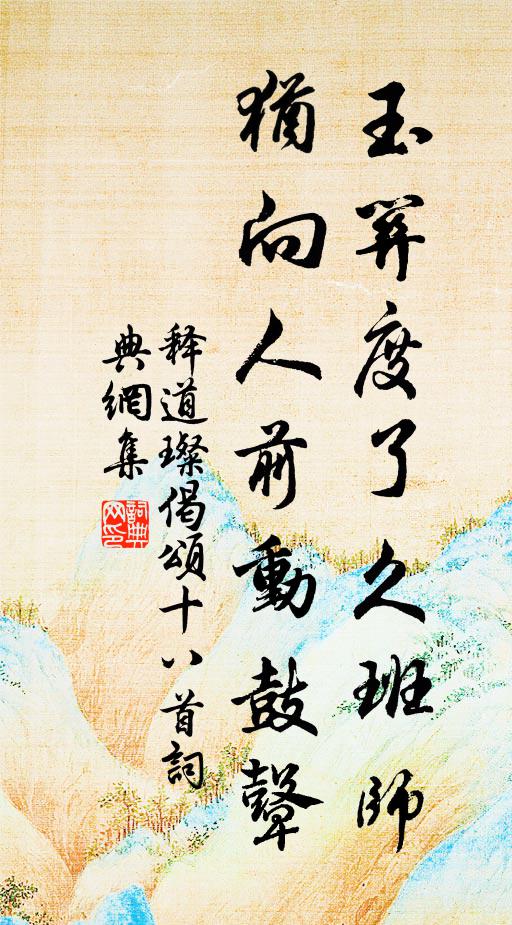 玉關度了久班師
猶向人前動鼓鼙
释道璨偈頌十八首詞
典網集
詞典
网印